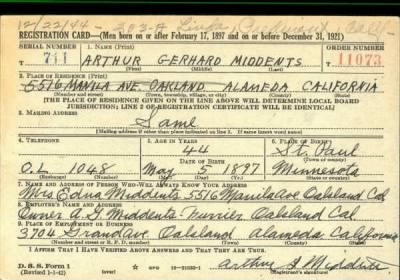 12/22/44 - 303-A Linda
REGISTRATION CARD—(Men born on or after February 17, 1897 and on or before December 31, 1921)
SERIAL NUMBER 1. NAME (Print) ORDER NUMBER
T 711 ARTHUR GERHARD MIDDENTS 11073
2. PLACE OF RESIDENCE (Print)
5516 MANILA AVE. OAKLAND ALAMEDA CALIFORNIA
(Number and street) (Town, township, village, or city) (County) (State)
[THE PLACE OF RESIDENCE GIVEN ON THE LINE ABOVE WILL DETERMINE LOCAL BOARD
JURISDICTION; LINE 2 OF REGISTRATION CERTIFICATE WILL BE IDENTICAL]
3. MAILING ADDRESS
Same
[Mailing address if other than place indicated on line 2. If same insert word same]
4. TELEPHONE 5. AGE IN YEARS 6. PLACE OF BIRTH
44 St. Paul
DATE OF BIRTH (Town or county)
OL 1048 May 5 1897 Minnesota
(Exchange) (Number) (Mo.) (Day) (Yr.) (State or country)
7. NAME AND ADDRESS OF PERSON WHO WILL ALWAYS KNOW YOUR ADDRESS
Mrs Edna Middents 5516 Manila Ave Oakland Cal
8. EMPLOYER'S NAME AND ADDRESS
Owner A. G. Middents Furrier Oakland Cal
9. PLACE OF EMPLOYMENT OR BUSINESS
3704 Grand Ave Oakland Alameda California
(Number and street or R. F. D. number) (Town) (County) (State)
I AFFIRM THAT I HAVE VERIFIED ABOVE ANSWERS AND THAT THEY ARE TRUE.
D. S. S. Form 1
(Revised 1-1-42) (over)
Arthur G Middents
(Registrant's signature)